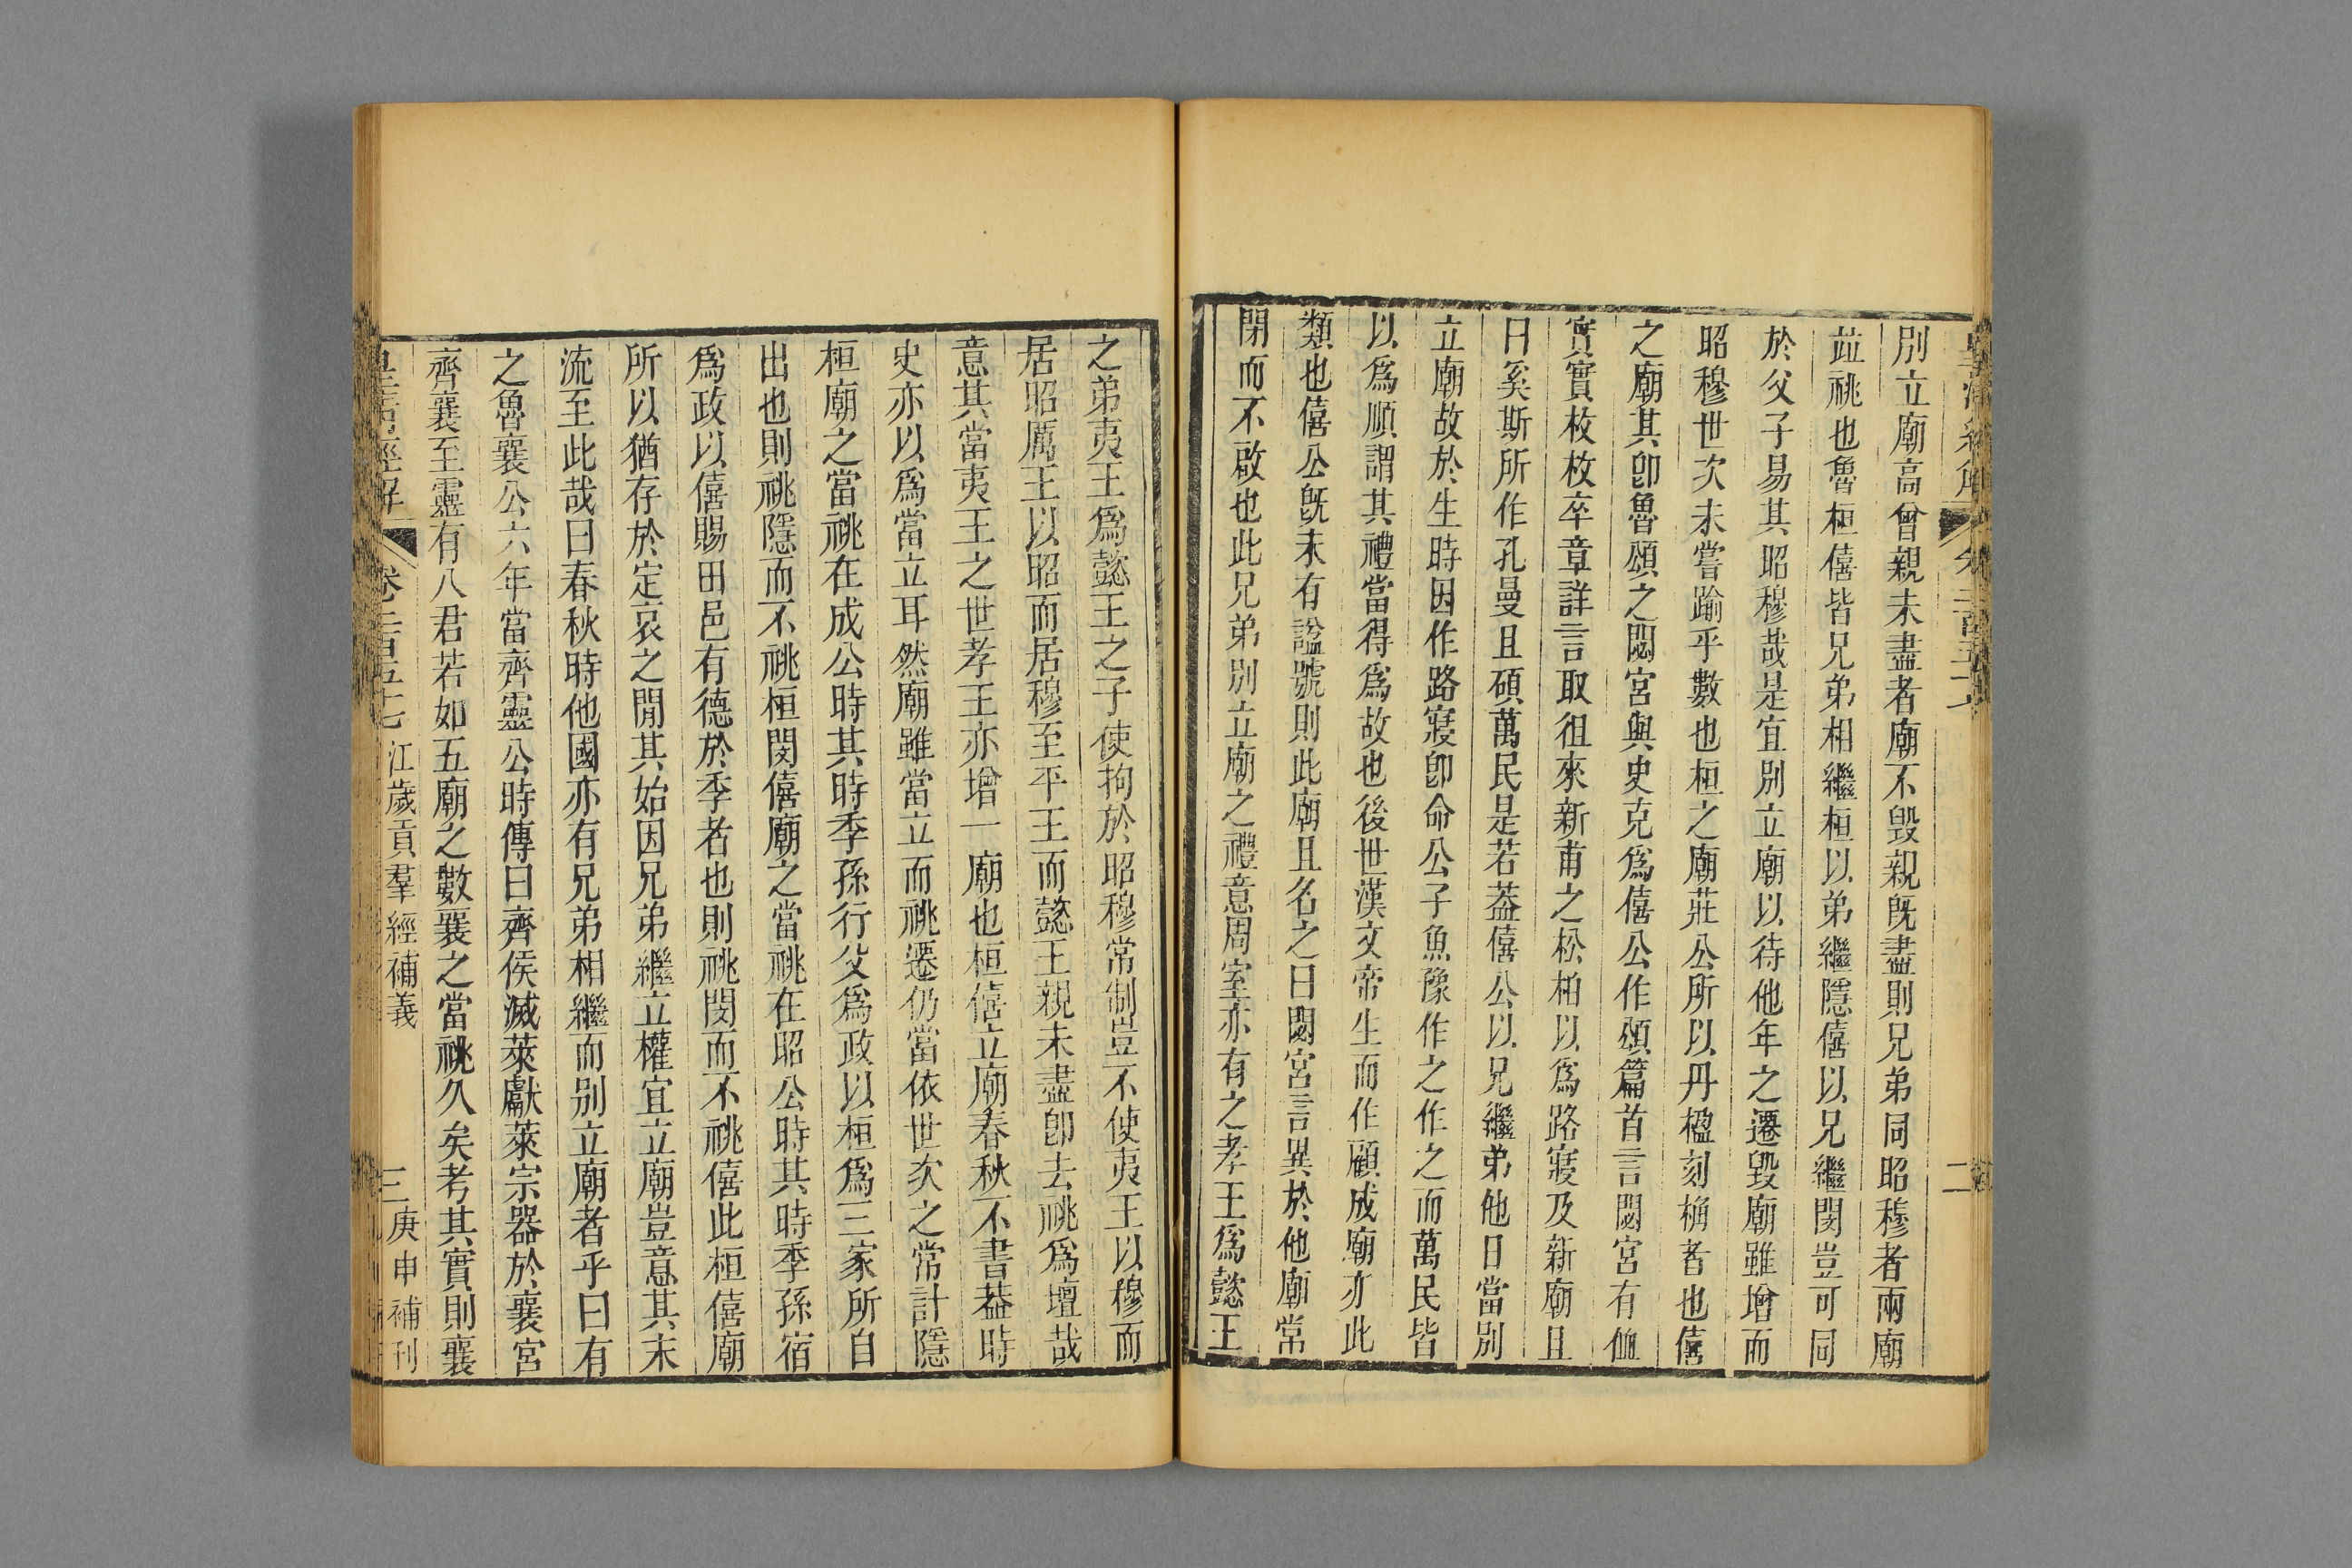 別立廟高曾親未盡者廟不毀親旣盡則兄弟同昭穆者兩廟
竝祧也魯桓僖皆兄弟相繼桓以弟繼隱僖以兄繼閔豈可同
於父子易其昭穆哉是宜別立廟以待他年之遷毀廟雖增而
昭穆世次未嘗踰乎數也桓之廟莊公所以丹楹刻桷者也僖
之廟其卽魯頌之閟宮與史克爲僖公作頌篇首言閟宮有侐
實實枚枚卒章詳言取徂來新甫之松柏以爲路寢及新廟且
曰奚斯所作孔曼且碩萬民是若葢僖公以兄繼弟他日當別
立廟故於生時因作路寢卽命公子魚豫作之作之而萬民皆
以爲順謂其禮當得爲故也後世漢文帝生而作顧成廟亦此
類也僖公旣未有諡號則此廟且名之曰閟宮言異於他廟常
閉而不啟也此兄弟別立廟之禮意周室亦有之孝王爲懿王
之弟夷王爲懿王之子使拘於昭穆常制豈不使夷王以穆而
居昭厲王以昭而居穆至平王而懿王親未盡卽去祧爲壇哉
意其當夷王之世孝王亦增一廟也桓僖立廟春秋不書葢時
史亦以爲當立耳然廟雖當立而祧遷仍當依世次之常計隱
桓廟之當祧在成公時其時季孫行父爲政以桓爲三家所自
出也則祧隱而不祧桓閔僖廟之當祧在昭公時其時季孫宿
爲政以僖賜田邑有德於季者也則祧閔而不祧僖此桓僖廟
所以猶存於定哀之閒其始因兄弟繼立權宜立廟豈意其末
流至此哉曰春秋時他國亦有兄弟相繼而別立廟者乎曰有
之魯襄公六年當齊靈公時傳曰齊侯滅萊獻萊宗器於襄宮
齊襄至靈有八君若如五廟之數襄之當祧久矣考其實則襄
皇淸經解
卷二百五十七
江歲貢羣經補義
三
庚申補刊